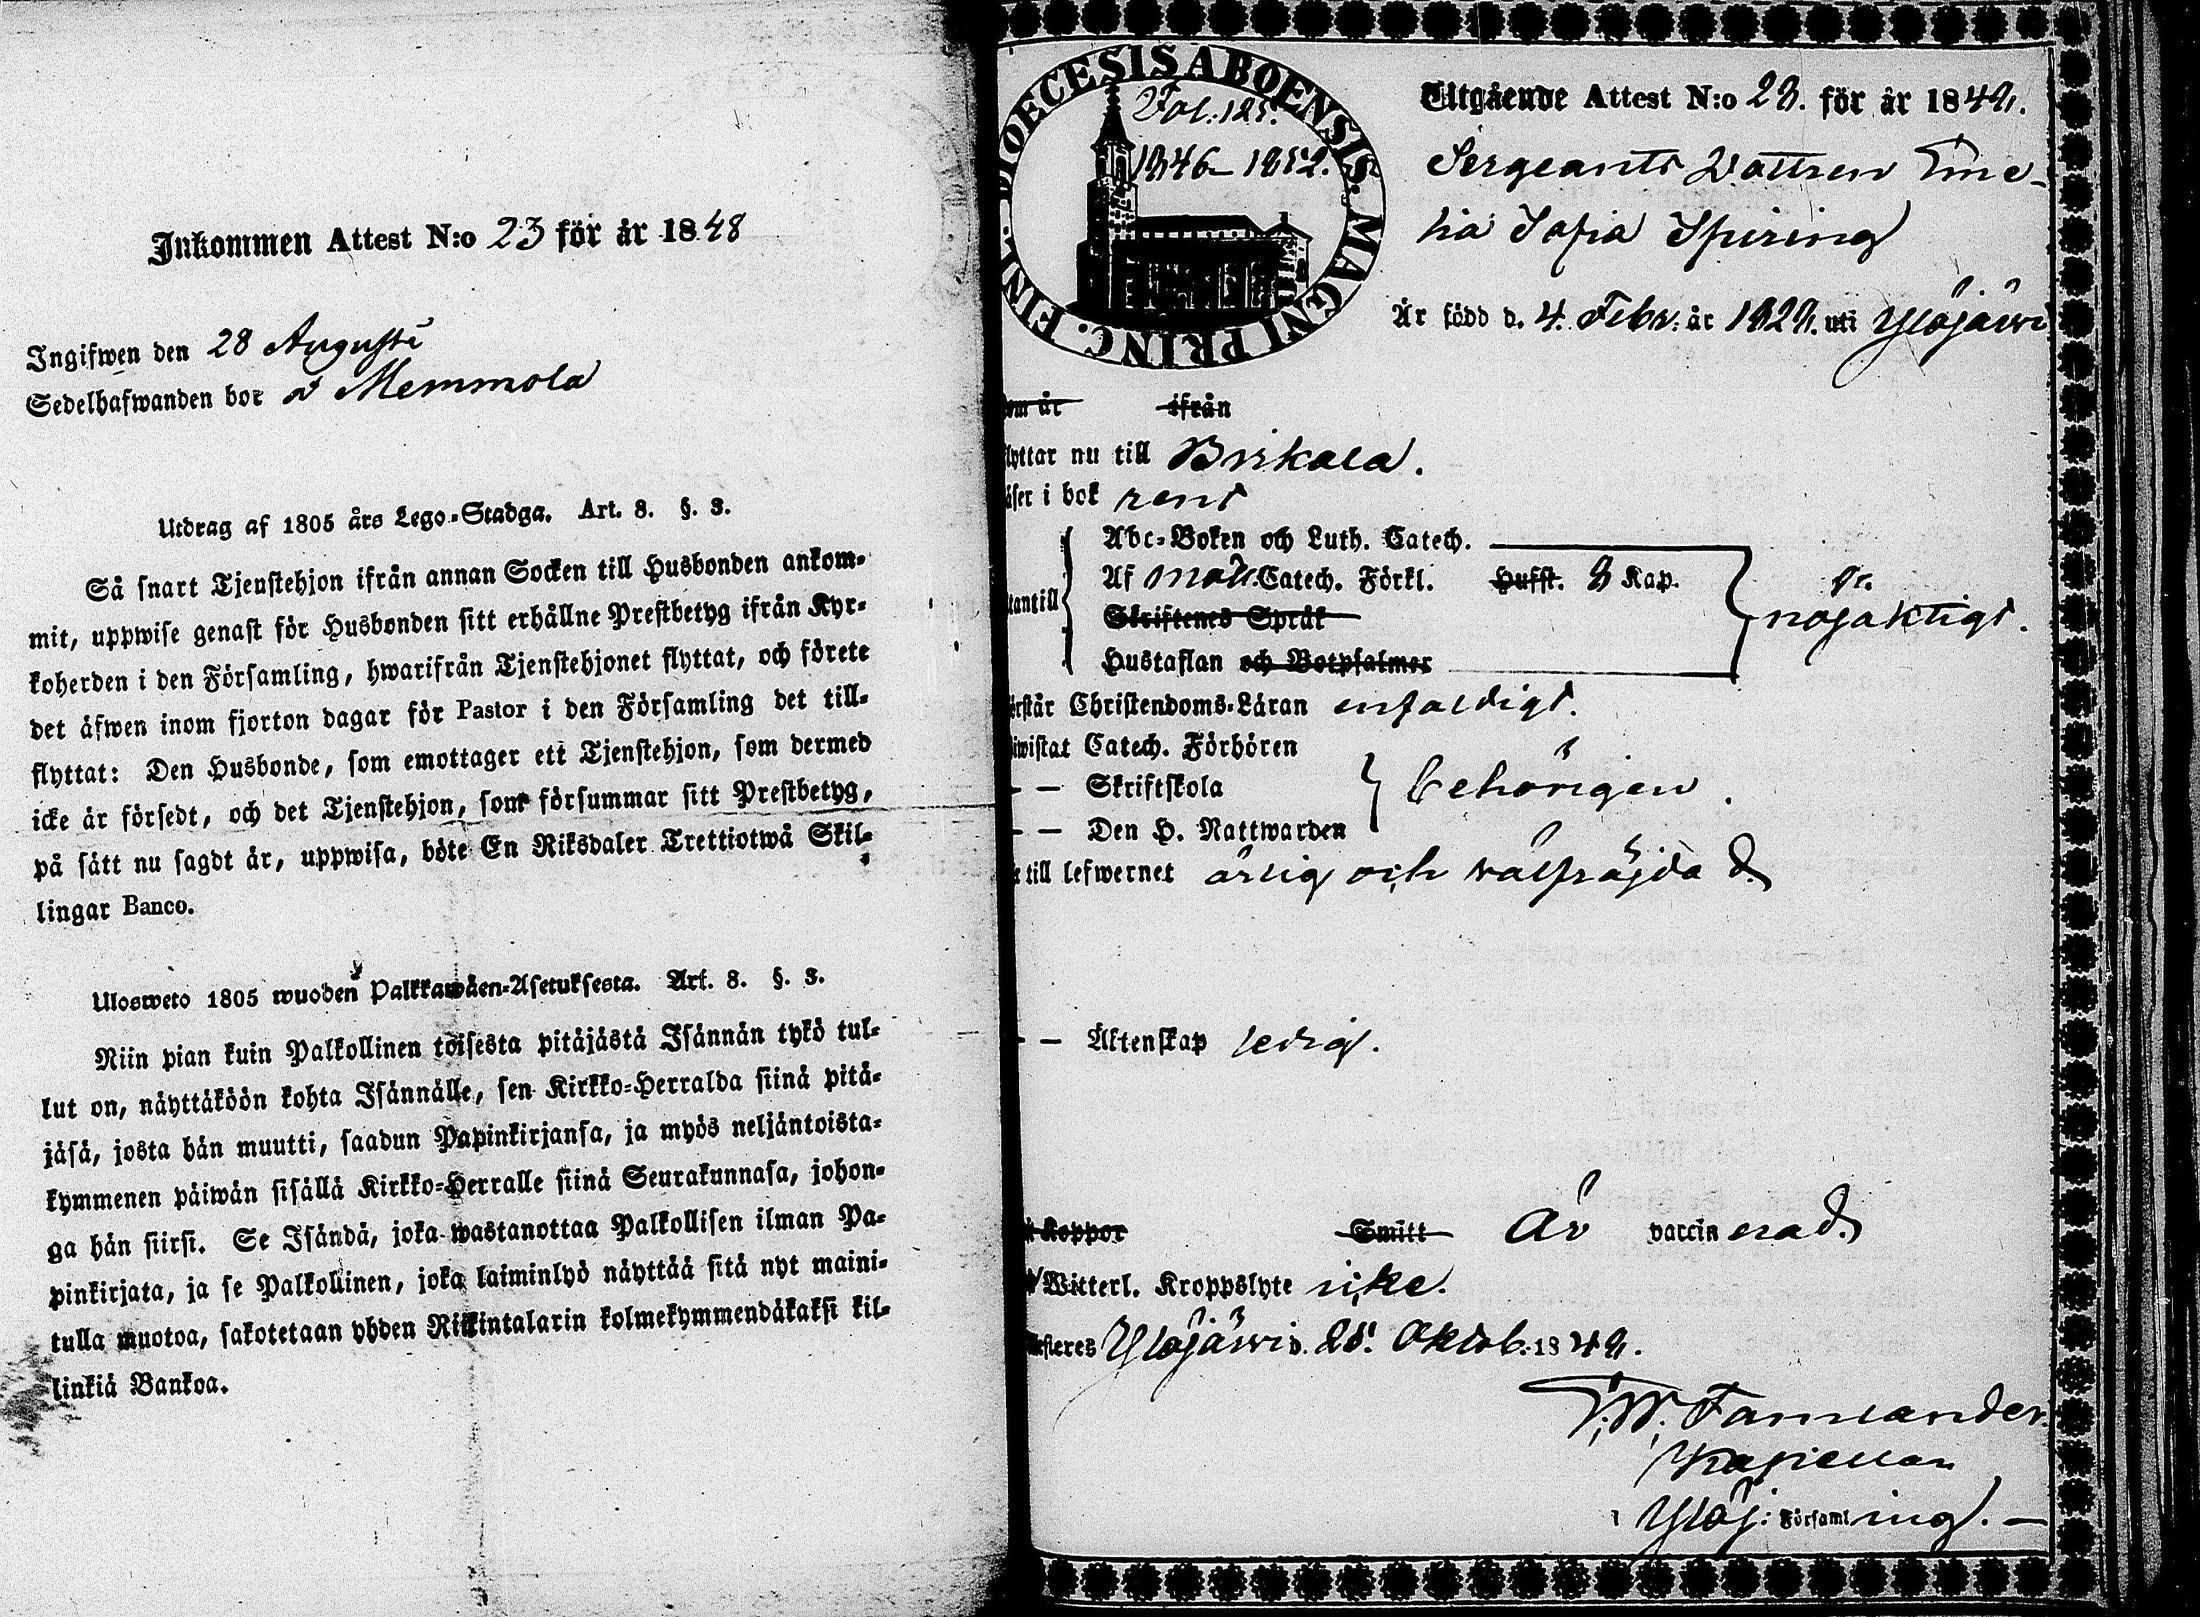 Inkommen Attest N:o 23 för år 1848
Ingifwen den 28 Augusti
Sedelhafwanden bor å Memmola
Utdrag af 1805 års Lego-Stadga. Art. 8. §. 3.
Så snart Tjenstehjon ifrån annan Socken till Husbonden ankom-
mit, uppwise genast för Husbonden sitt erhållne Prestbetyg ifrån Kyr-
koherden i den Församling, hwarifrån Tjenstehjonet flyttat, och förete
det äfwen inom fjorton dagar för Pastor i den Församling det till-
flyttat: Den Husbonde, som emottager ett Tjenstehjon, som dermed
icke är försedt, och det Tjenstehjon, som försummar sitt Prestbetyg,
på sätt nu sagdt är, uppwisa, böte En Riksdaler Trettiotwå Skil-
lingar Banco.
Ulosweto 1805 wuoden Palkkawäen-Asetuksesta. Art. 8. §. 3.
Niin pian kuin Palkollinen toisesta pitäjästä Isännän tykö tul-
lut on, näyttäköön kohta Isännälle, sen Kirkko-Herralda siinä pitä-
jäsä, josta hän muutti, saadun Papinkirjansa, ja myös neljäntoista-
kymmenen päiwän sisällä Kirkko-Herralle siinä Seurakunnasa, johon-
ga hän siirsi. Se Isändä, joka wastanottaa Palkollisen ilman Pa-
pinkirjata, ja se Palkollinen, joka laiminlyö näyttää sitä nyt maini-
tulla muotoa, sakotetaan yhden Riikintalarin kolmekymmendäkaksi kil-
linkiä Bankoa.
DIOECESIS ABOENSIS. MAGNI PRINC. FINL.
Fol. 125.
1846-1852.
Utgående Attest N:o 23. för år 1848.
Sergeants Dottren Eme-
lia Sofia Spiring
Är född d. 4. Febr. år 1828. uti Ylöjärvi
om år ifrån
flyttar nu till Birkala.
äser i bok rent
Abc-Boken och Luth. Catech.
Af Catech. Förkl. Hufst. 8 Kap.
tantill
nöjaktigt.
Skriftenes Språk
Hustaflan och Botpsalmer
erstår Christendoms-Läran enfaldigt.
iwistat Catech. Förhören
— — Skriftskola behörigen.
— — Den H. Nattwarden
till lefwernet ärlig och välfräjdad
— — Äktenskap ledig.
Koppor Smitt Är vaccinerad.
Witterl. Kroppslyte icke.
esteres Ylöjärvi d. 25. Oktob. 1848.
Kapellan
i Ylöj: Församling. —